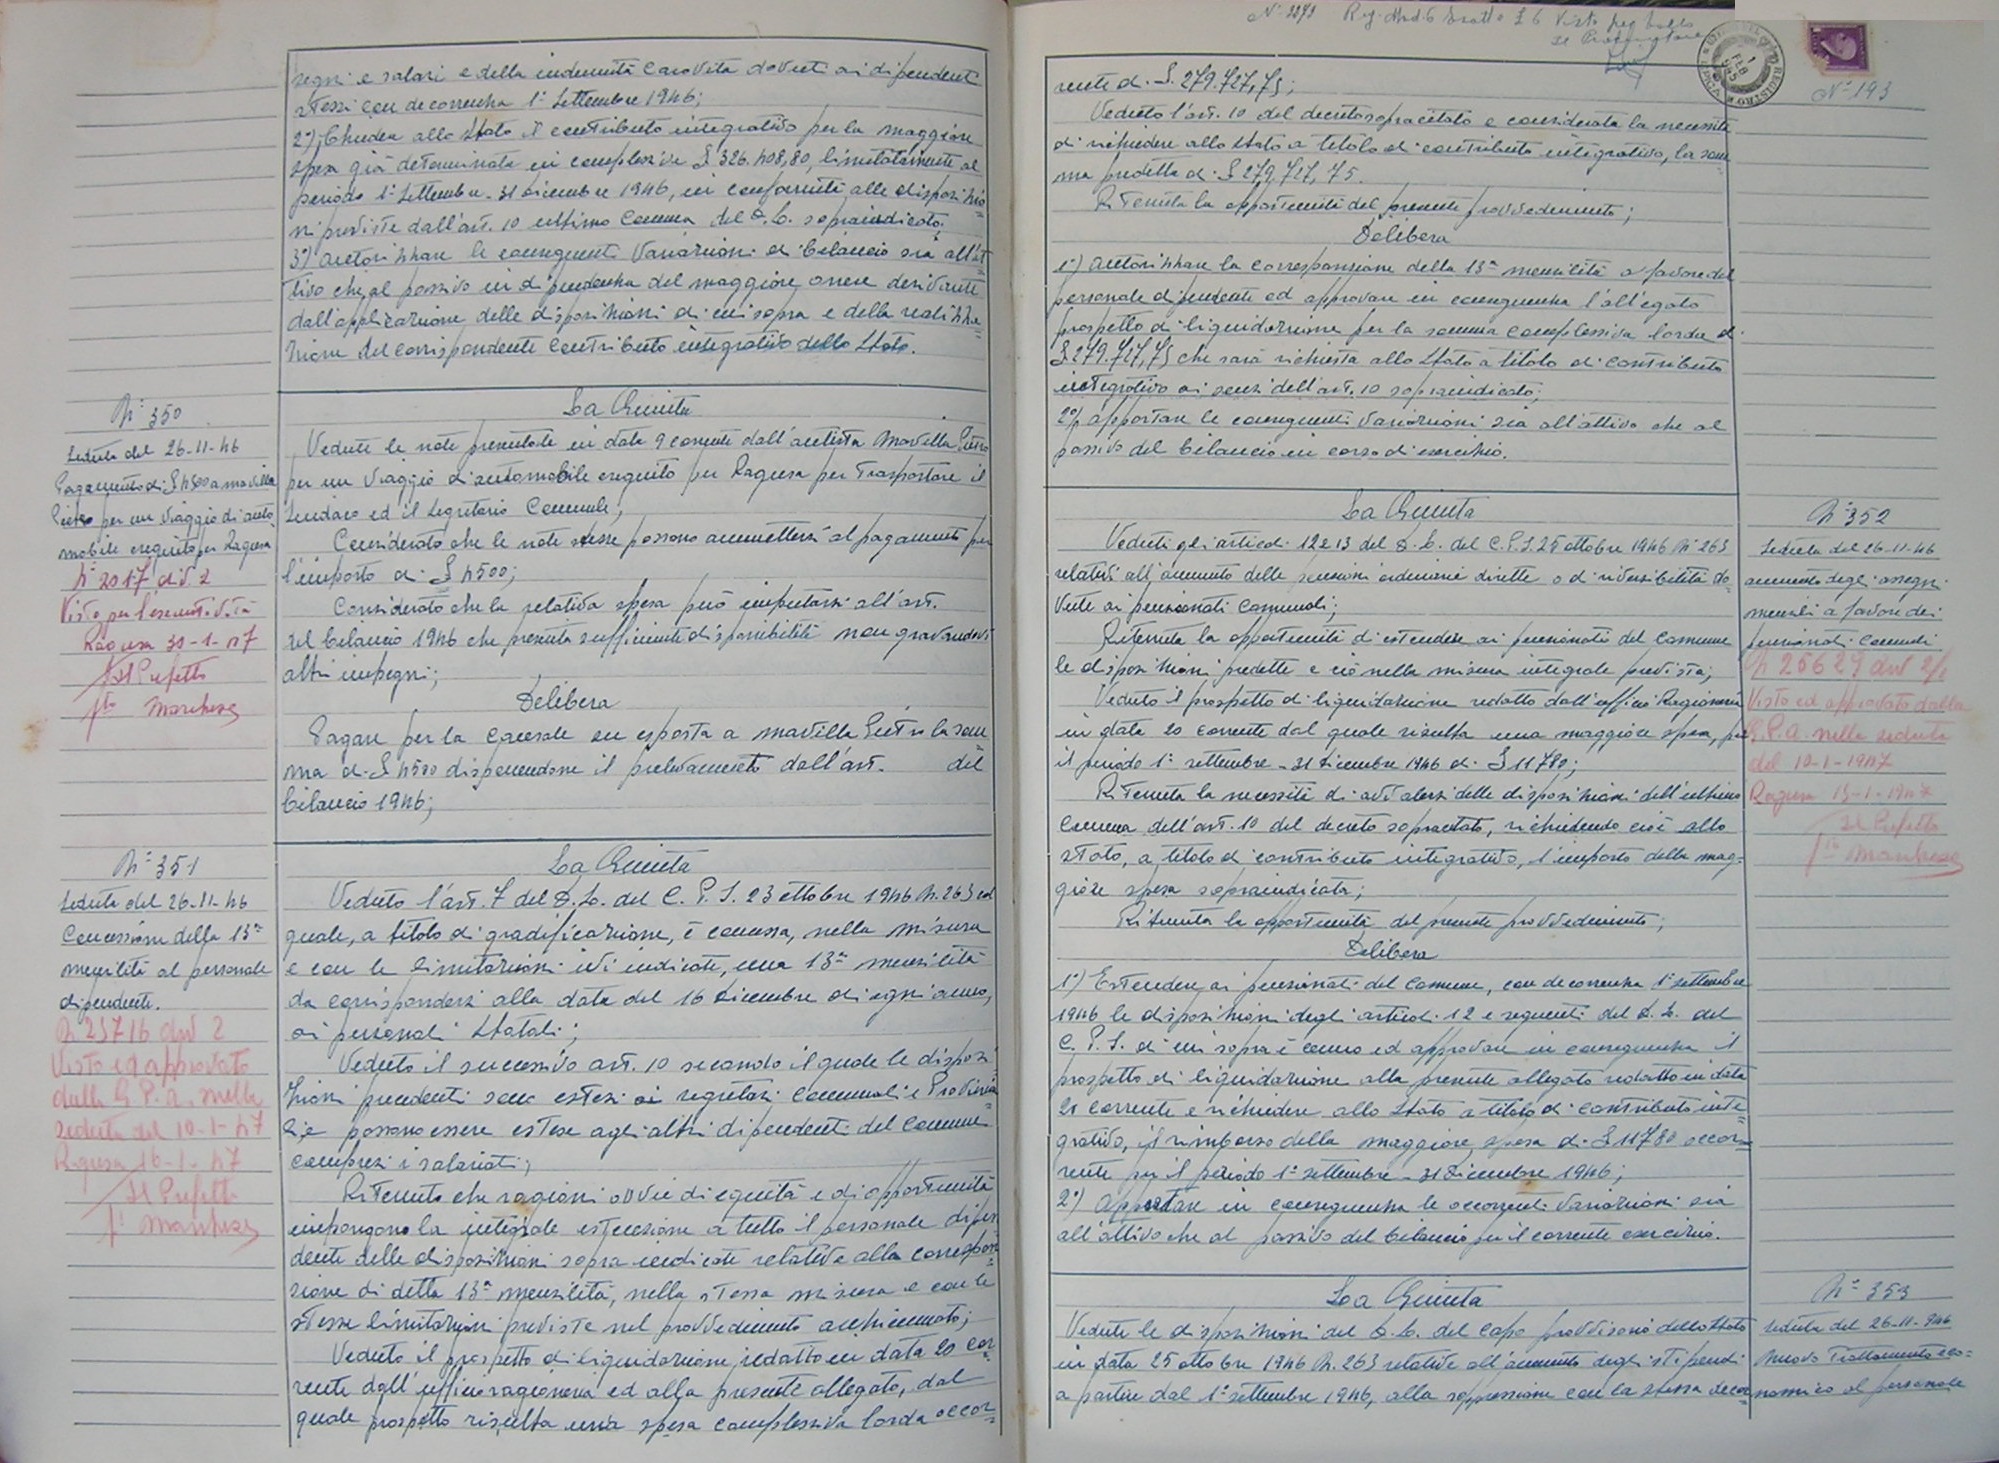 segni e salari e della indennità carovita dovuti ai dipendenti
stessi con decorrenza 1° Settembre 1946;
2°) Chiedere allo Stato il contributo integrativo per la maggiore
spesa già determinata in complessive £ 326.408,80, limitatamente al
periodo 1° Settembre - 31 dicembre 1946, in conformità alle disposizio=
ni previste dall'art. 10 ultimo comma del D.L. sopraindicato;
3°) autorizzare le conseguenti variazioni di bilancio sia all'at=
tivo che al passivo in dipendenza del maggiore onere derivante
dall'applicazione delle disposizioni di cui sopra e della realizza=
zione del corrispondente contributo integrativo dello Stato.
N° 350
Seduta del 26-11-46
Pagamento di £ 4500 a Mavilla
Pietro per un viaggio di auto
mobile eseguito per Ragusa
N° 2017 div 2
Visto per l'esecutività
Ragusa 30-1-47
Il Prefetto
fto Marchese
La Giunta
Vedute le note presentate in data 9 corrente dall'autista Mavilla Pietro
per un viaggio d'automobile eseguito per Ragusa per trasportare il
Sindaco ed il Segretario Comunale;
Considerato che le note stesse possono ammettersi al pagamento per
l'importo di £ 4500;
Considerato che la relativa spesa può imputarsi all'art.
del bilancio 1946 che presenta sufficiente disponibilità non gravandovi
altri impegni;
Delibera
Pagare per la causale su esposta a Mavilla Pietro la som
ma di £ 4500 disponendone il prelevamento dall'art. del
bilancio 1946;
N° 351
Seduta del 26-11-46
Concessione della 13ª
mensilità al personale
dipendente.
N 25716 div 2
Visto ed approvato
dalla G.P.A. nella
seduta del 10-1-47
Ragusa 16-1-47
Il Prefetto
f° Marchese
La Giunta
Veduto l'art. 7 del D.L. del C.P.S. 23 ottobre 1946 N. 263 col
quale, a titolo di gradificazione, è concessa, nella misura
e con le limitazioni ivi indicate, una 13ª mensilità
da corrispondersi alla data del 16 dicembre di ogni anno,
ai personali Statali;
Veduto il successivo art. 10 secondo il quale le disposi=
zioni precedenti sono estesi ai segretari Comunali e Provincia=
li e possono essere estese agli altri dipendenti del Comune
compresi i salariati;
Ritenuto che ragioni ovvie di equità e di opportunità
impongono la integrale estensione a tutto il personale dipen
dente delle disposizioni sopra indicate relative alla correspon
sione di detta 13ª mensilità, nella stessa misura e con le
stesse limitazioni previste nel provvedimento anzicennato;
Veduto il prospetto di liquidazione, redatto in data 20 cor=
rente dall'ufficio ragioneria ed alla presente allegato, dal
quale prospetto risulta una spesa complessiva lorda occor=
N° 2273 Visto per bollo
N° 193
rente di £. 279.727,75;
Veduto l'art. 10 del decreto sopracitato e considerata la necessità
di richiedere allo Stato a titolo di contributo integrativo, la som=
ma predetta di £ 279.727,75.
Ritenuta la opportunità del presente provvedimento;
Delibera
1°) autorizzare la corresponsione della 13ª mensilità a favore del
personale dipendente ed approvare in conseguenza l'allegato
prospetto di liquidazione per la somma complessiva lorda di
£ 279.727,75 che sarà richiesta allo Stato a titolo di contributo
integrativo ai sensi dell'art. 10 sopraindicato;
2°) apportare le conseguenti variazioni sia all'attivo che al
passivo del bilancio in corso di esercizio.
La Giunta
Veduti gli articoli 12 e 13 del D.L. del C.P.S. 25 ottobre 1946 N° 263
relativi all'aumento delle pensioni ordinarie dirette o di riversibilità do=
vute ai pensionati Comunali;
Ritenuta la opportunità di estendere ai pensionati del Comune
le disposizioni predette e ciò nella misura integrale prevista;
Veduto il prospetto di liquidazione redatto dall'ufficio Ragioneria
in data 20 corrente dal quale risulta una maggiore spesa, per
il periodo 1° settembre - 31 dicembre 1946 di £ 11780;
Ritenuta la necessità di avvalersi delle disposizioni dell'ultimo
comma dell'art. 10 del decreto sopracitato, richiedendo cioè allo
Stato, a titolo di contributo integrativo, l'importo della mag=
giore spesa sopraindicata;
Ritenuta la opportunità del presente provvedimento;
Delibera
1°) Estendere ai pensionati del Comune, con decorrenza 1° settembre
1946 le disposizioni degli articoli 12 e seguenti del D.L. del
C.P.S. di cui sopra è cenno ed approvare in conseguenza il
prospetto di liquidazione alla presente allegato redatto in data
20 corrente e richiedere allo Stato a titolo di contributo inte=
grativo, il rimborso della maggiore spesa di £ 11780 occor=
rente per il periodo 1° settembre - 31 dicembre 1946;
2°) Apportare in conseguenza le occorrenti variazioni sia
all'attivo che al passivo del bilancio per il corrente esercizio.
N° 352
Seduta del 26-11-46
aumento degli assegni
mensili a favore dei
pensionati Comunali
N 25629 div 2/1
Visto ed approvato dalla
G.P.A. nella seduta
del 10-1-1947
Ragusa 15-1-1947
Il Prefetto
f° Marchese
La Giunta
Vedute le disposizioni del D.L. del Capo provvisorio dello Stato
in data 25 ottobre 1946 N. 263 relative all'aumento degli stipendi
a partire dal 1° settembre 1946, alla soppressione con la stessa decor
N° 353
Seduta del 26-11-946
Nuovo Trattamento eco=
nomico al personale